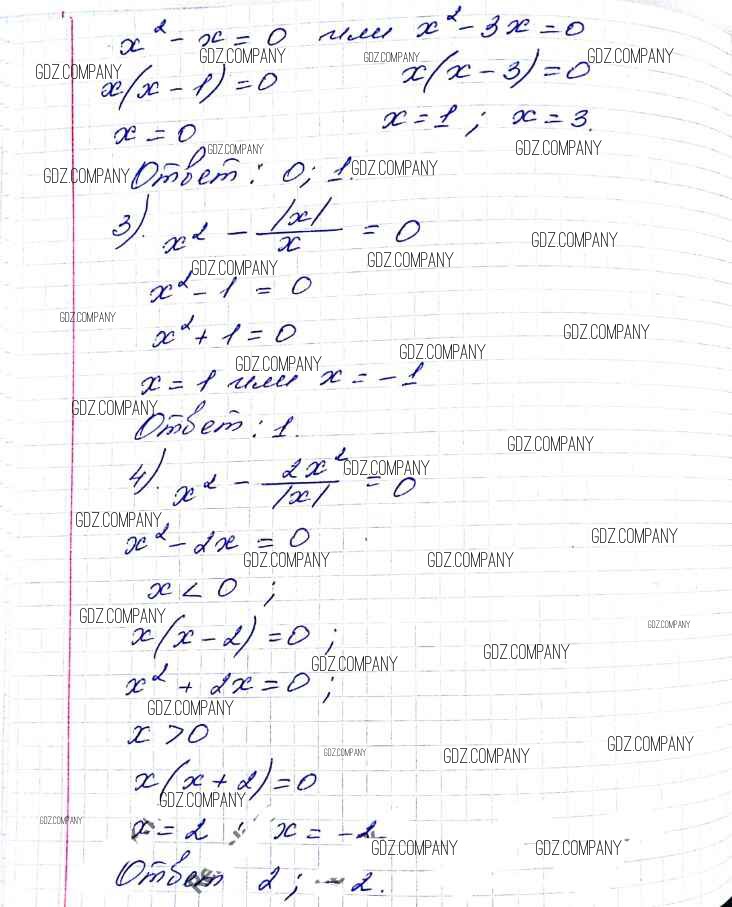 x² - x = 0 или x² - 3x = 0
GDZ.COMPANY GDZ.COMPANY GDZ.COMPANY GDZ.COMPANY
x(x - 1) = 0 x(x - 3) = 0
x = 0 x = 1 ; x = 3.
GDZ.COMPANY GDZ.COMPANY
Ответ: 0; 1.
GDZ.COMPANY GDZ.COMPANY
3). x² - |x|/x = 0
GDZ.COMPANY GDZ.COMPANY GDZ.COMPANY
x² - 1 = 0
GDZ.COMPANY
x² + 1 = 0
GDZ.COMPANY GDZ.COMPANY GDZ.COMPANY
x = 1 или x = -1
GDZ.COMPANY
Ответ: 1.
GDZ.COMPANY
4). x² - 2x²/|x| = 0
GDZ.COMPANY GDZ.COMPANY
x² - 2x = 0
GDZ.COMPANY GDZ.COMPANY GDZ.COMPANY
x < 0 ;
GDZ.COMPANY GDZ.COMPANY
x(x - 2) = 0 ;
GDZ.COMPANY GDZ.COMPANY
x² + 2x = 0 ;
GDZ.COMPANY
x > 0
GDZ.COMPANY GDZ.COMPANY GDZ.COMPANY
x(x + 2) = 0
GDZ.COMPANY
GDZ.COMPANY
x = 2 ; x = -2
GDZ.COMPANY GDZ.COMPANY
Ответ 2 ; -2.